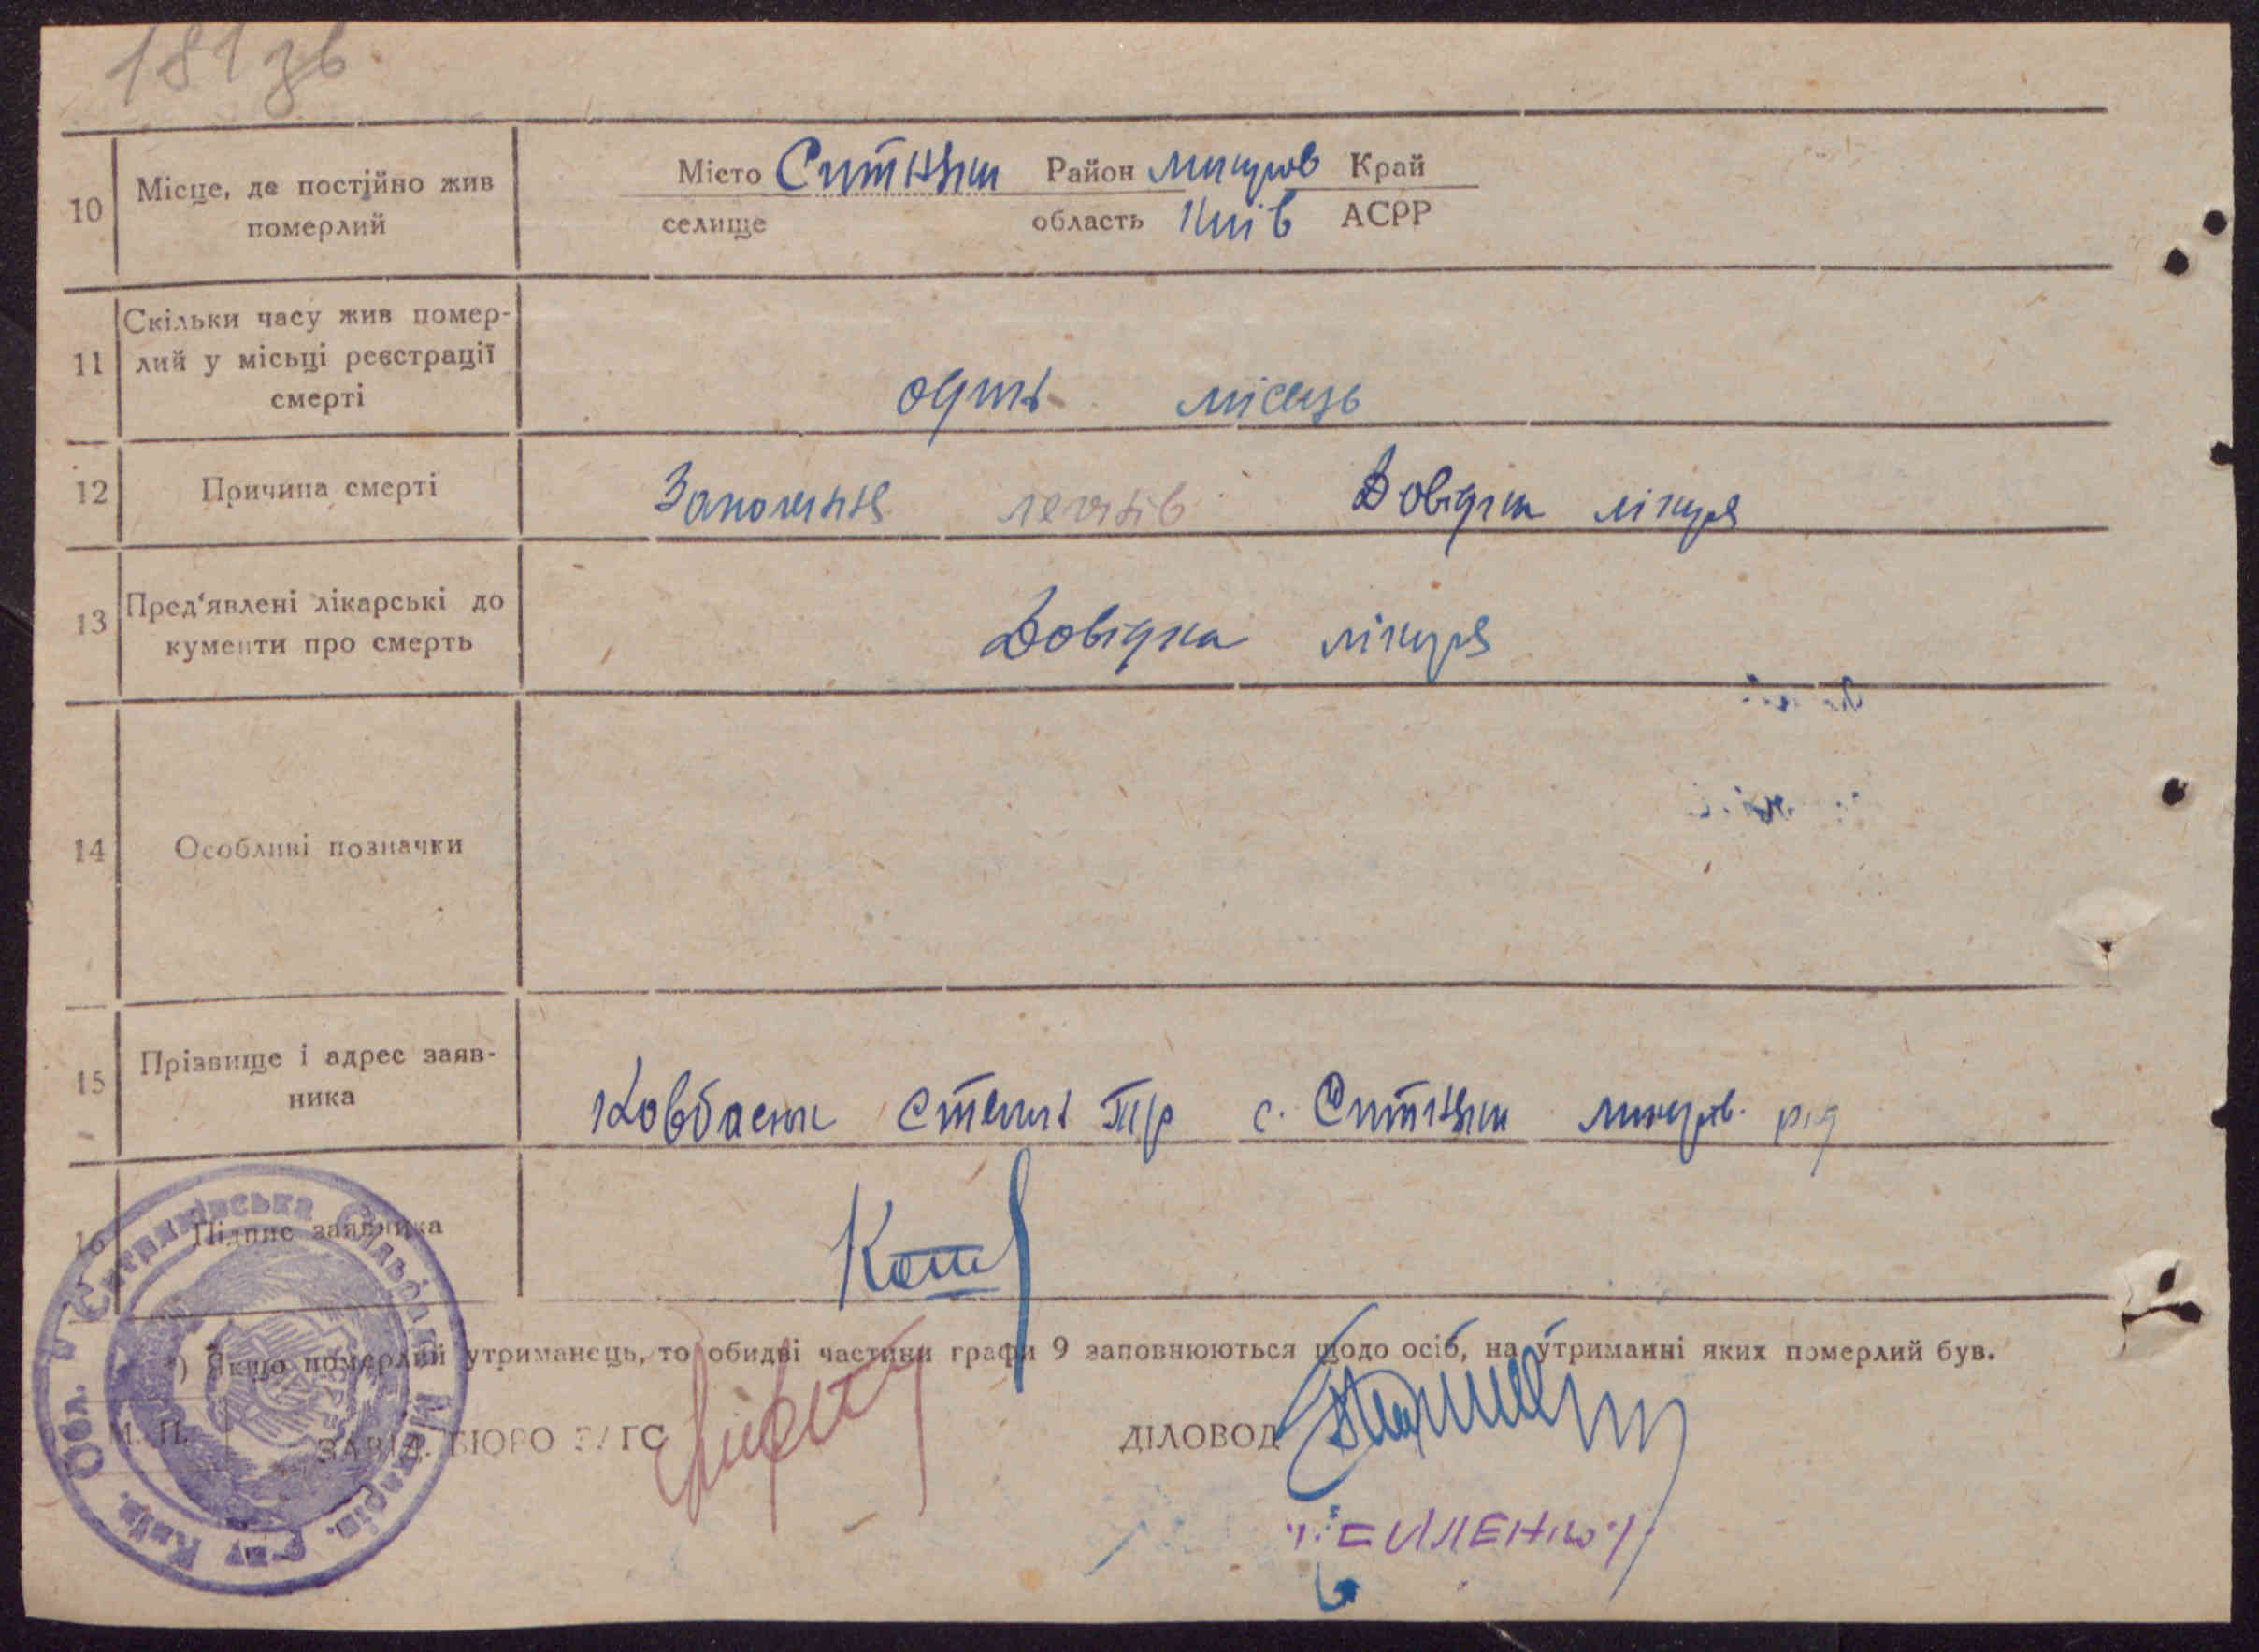 181 зв
10 Місце, де постійно жив померлий
Місто Ситняки Район Макарів Край
селище область Київ АСРР
11 Скільки часу жив помер-
лий у місьці реєстрації
смерті
один місяць
12 Причина смерті Запалення легенів Довідка лікаря
13 Пред'явлені лікарські до
кументи про смерть
Довідка лікаря
14 Особливі позначки
15 Прізвище і адрес заяв-
ника
Ковбасюк Степан с. Ситняки Макарів. р-н
16 Підпис заявника
*) Якщо померлий утриманець, то обидві частини графи 9 заповнюються щодо осіб, на утриманні яких померлий був.
М. П.
ЗАВІД. БЮРО ЗАГС ДІЛОВОД
Ситняківська Сільська Макарів. р-ну Київ. Обл.